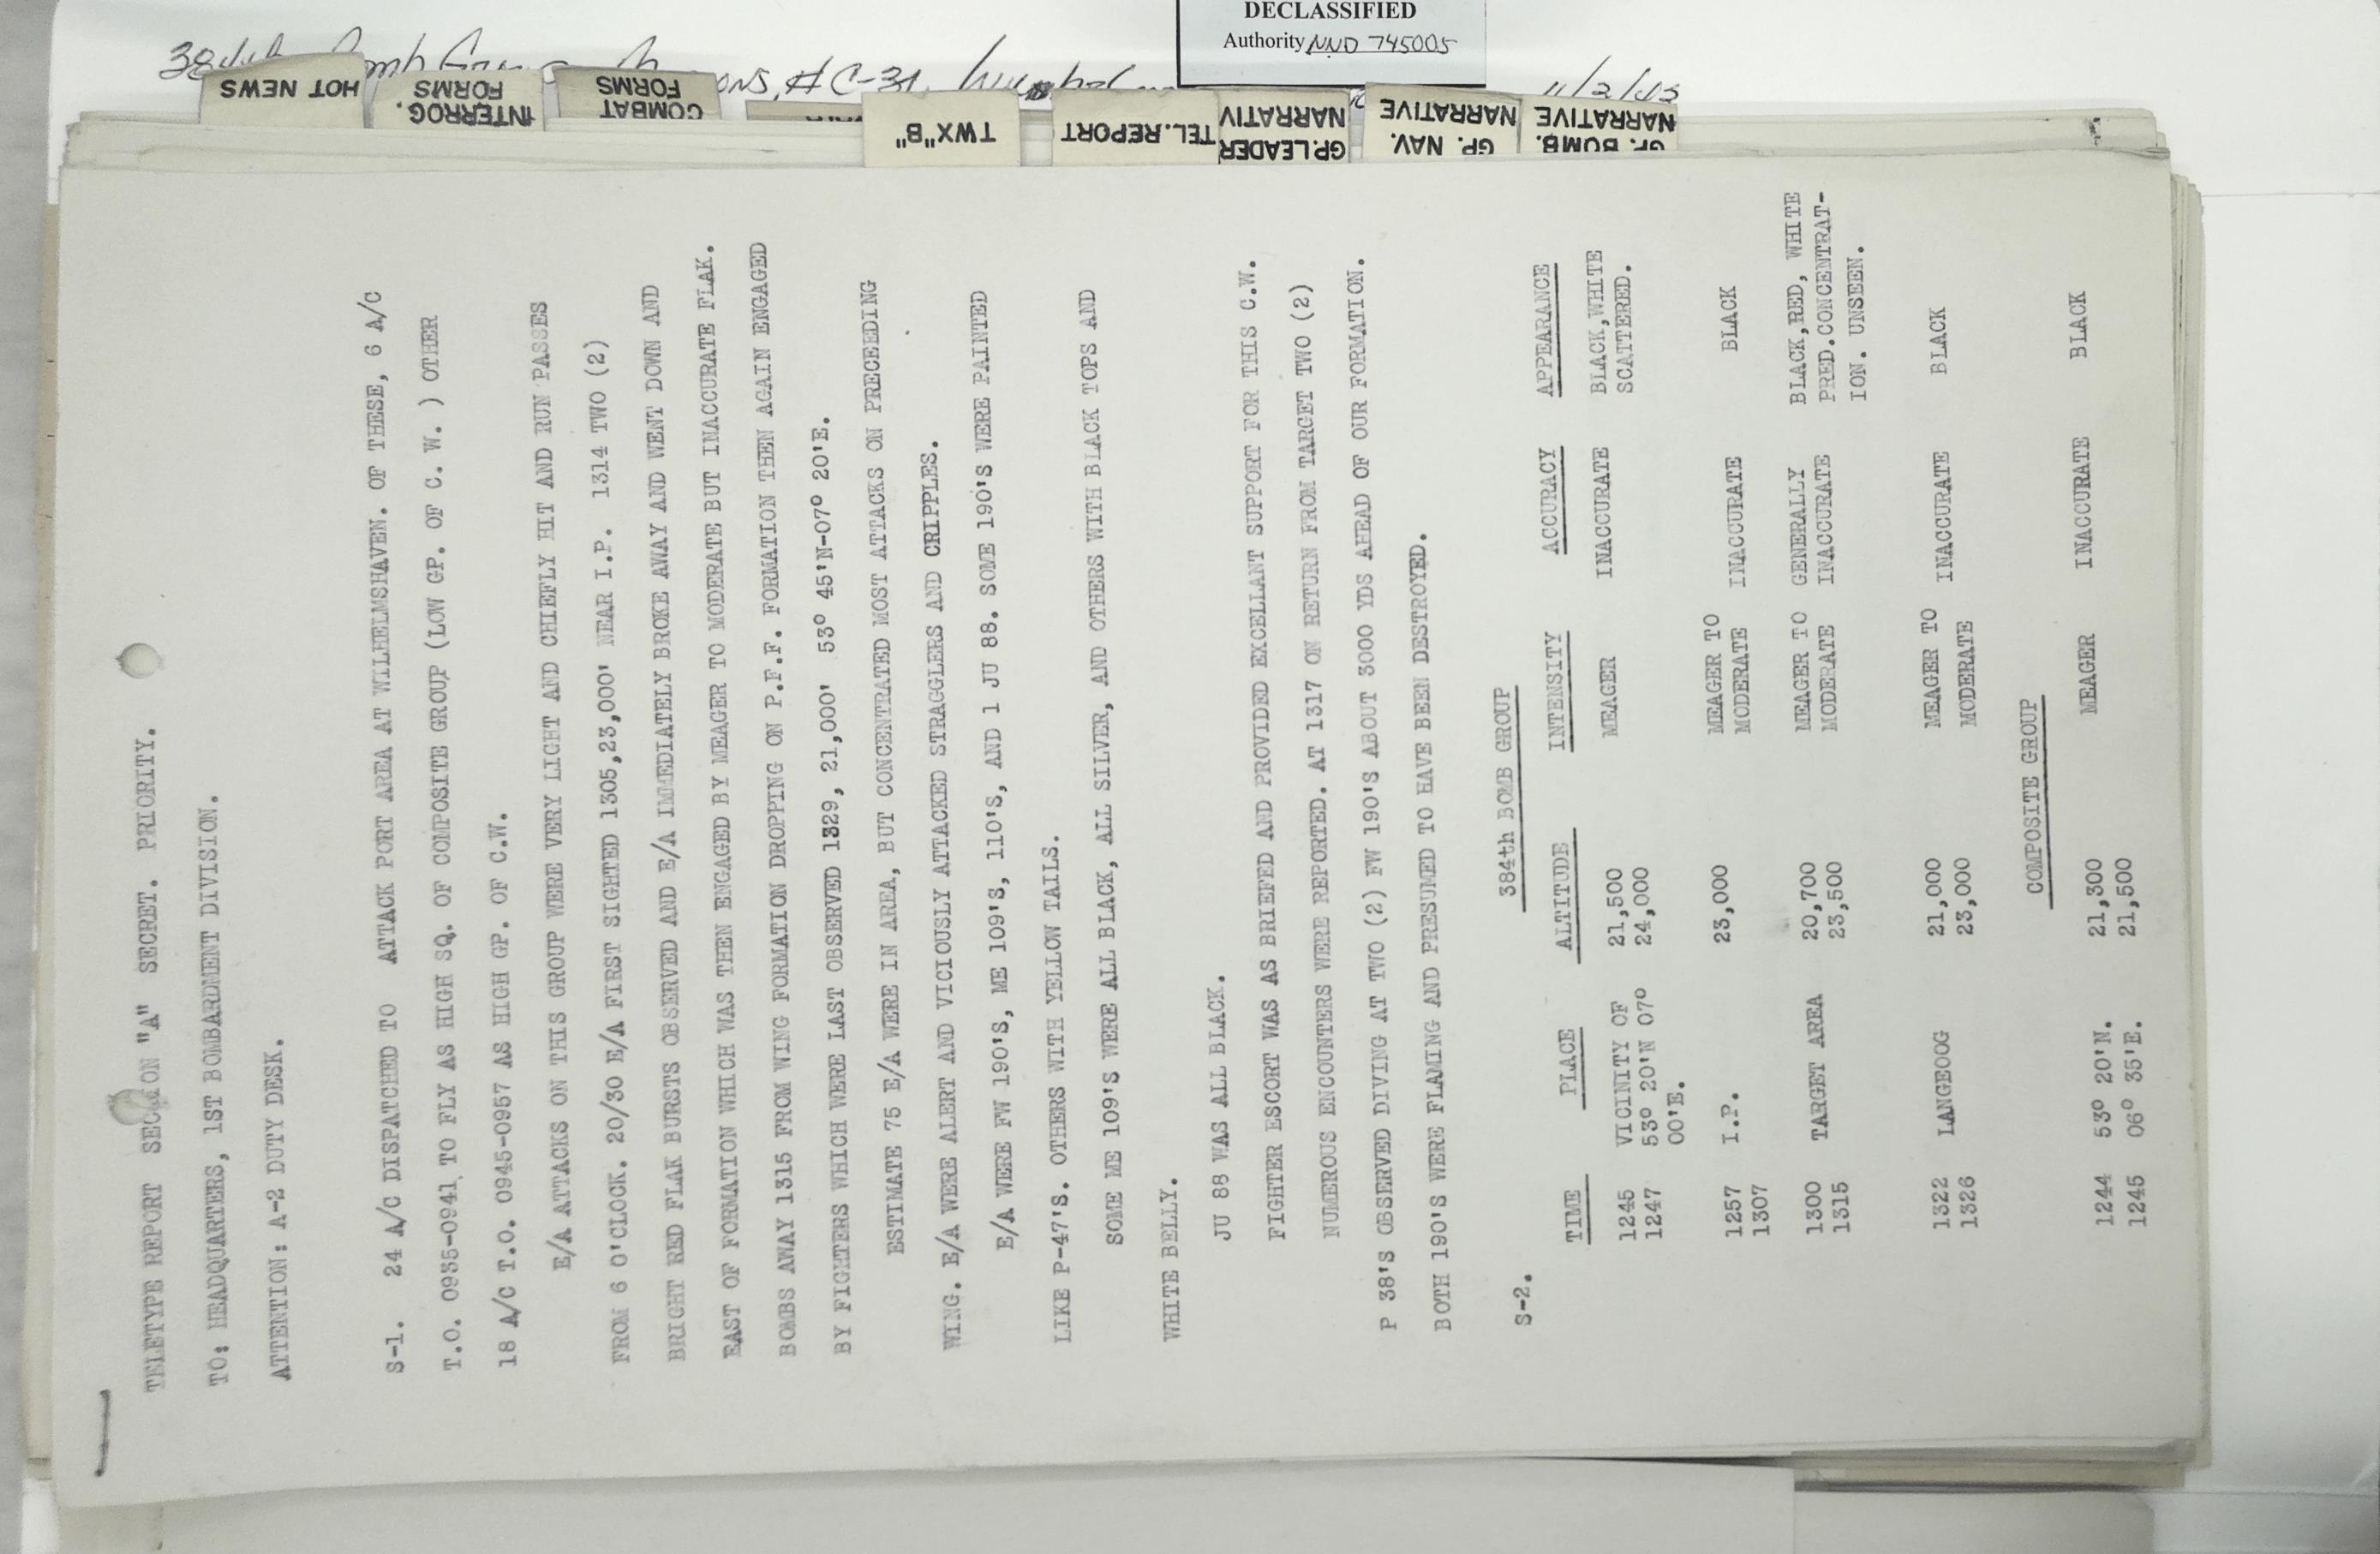 DECLASSIFIED
Authority NND 745005
HOT NEWS
INTERROG.
FORMS
COMBAT
FORMS
TWX"B"
TEL.REPORT
GP.LEADER
NARRATIV
GP. NAV.
NARRATIVE
GP. BOMB.
NARRATIVE
TELETYPE REPORT SECTION "A" SECRET. PRIORITY.
TO: HEADQUARTERS, 1ST BOMBARDMENT DIVISION.
ATTENTION: A-2 DUTY DESK.
S-1. 24 A/C DISPATCHED TO ATTACK PORT AREA AT WILHELMSHAVEN. OF THESE, 6 A/C
T.O. 0935-0941 TO FLY AS HIGH SQ. OF COMPOSITE GROUP (LOW GP. OF C. W. ) OTHER
18 A/C T.O. 0945-0957 AS HIGH GP. OF C.W.
E/A ATTACKS ON THIS GROUP WERE VERY LIGHT AND CHIEFLY HIT AND RUN PASSES
FROM 6 O'CLOCK. 20/30 E/A FIRST SIGHTED 1305,23,000' NEAR I.P. 1314 TWO (2)
BRIGHT RED FLAK BURSTS OBSERVED AND E/A IMMEDIATELY BROKE AWAY AND WENT DOWN AND
EAST OF FORMATION WHICH WAS THEN ENGAGED BY MEAGER TO MODERATE BUT INACCURATE FLAK.
BOMBS AWAY 1315 FROM WING FORMATION DROPPING ON P.F.F. FORMATION THEN AGAIN ENGAGED
BY FIGHTERS WHICH WERE LAST OBSERVED 1329, 21,000' 53° 45'N-07° 20'E.
ESTIMATE 75 E/A WERE IN AREA, BUT CONCENTRATED MOST ATTACKS ON PRECEEDING
WING. E/A WERE ALERT AND VICIOUSLY ATTACKED STRAGGLERS AND CRIPPLES.
E/A WERE FW 190'S, ME 109'S, 110'S, AND 1 JU 88. SOME 190'S WERE PAINTED
LIKE P-47'S. OTHERS WITH YELLOW TAILS.
SOME ME 109'S WERE ALL BLACK, ALL SILVER, AND OTHERS WITH BLACK TOPS AND
WHITE BELLY.
JU 88 WAS ALL BLACK.
FIGHTER ESCORT WAS AS BRIEFED AND PROVIDED EXCELLANT SUPPORT FOR THIS C.W.
NUMEROUS ENCOUNTERS WERE REPORTED. AT 1317 ON RETURN FROM TARGET TWO (2)
P 38'S OBSERVED DIVING AT TWO (2) FW 190'S ABOUT 3000 YDS AHEAD OF OUR FORMATION.
BOTH 190'S WERE FLAMING AND PRESUMED TO HAVE BEEN DESTROYED.
S-2. 384th BOMB GROUP
TIME PLACE ALTITUDE INTENSITY ACCURACY APPEARANCE
1245 VICINITY OF 21,500 MEAGER INACCURATE BLACK,WHITE
1247 53° 20'N 07° 24,000 SCATTERED.
00'E.
1257 I.P. 23,000 MEAGER TO INACCURATE BLACK
1307 MODERATE
1300 TARGET AREA 20,700 MEAGER TO GENERALLY BLACK,RED, WHITE
1315 23,500 MODERATE INACCURATE PRED.CONCENTRAT-
ION. UNSEEN.
1322 LANGEOOG 21,000 MEAGER TO INACCURATE BLACK
1326 23,000 MODERATE
COMPOSITE GROUP
1244 53° 20'N. 21,300 MEAGER INACCURATE BLACK
1245 06° 35'E. 21,500